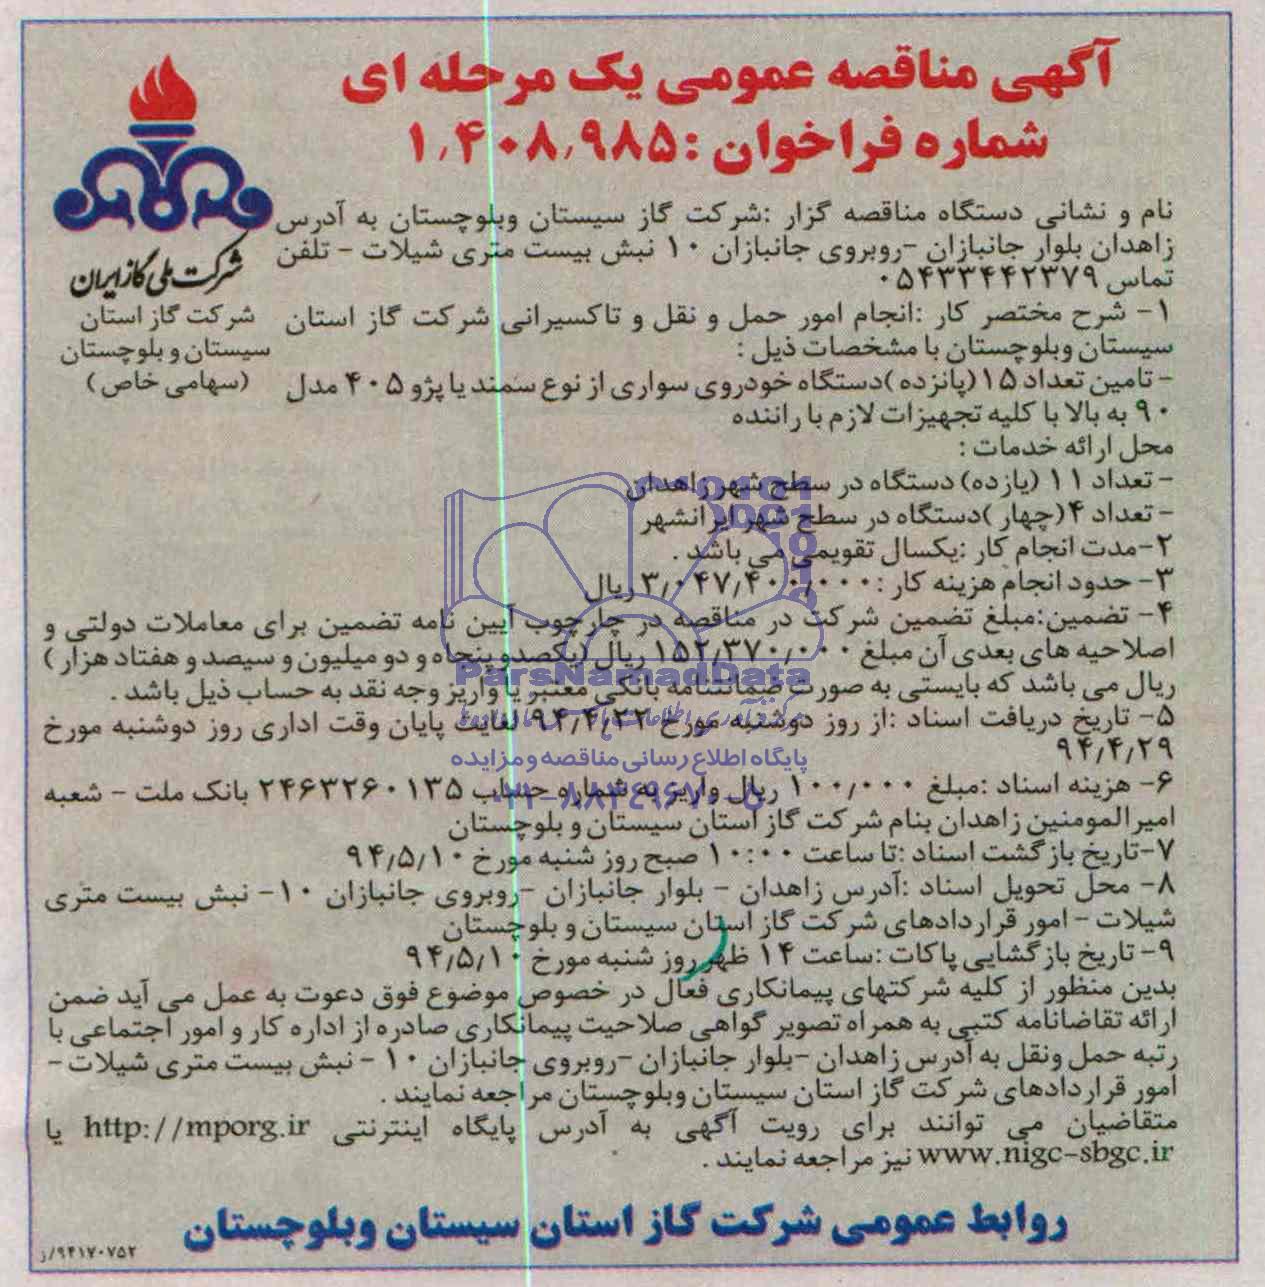 آگهی مناقصه عمومی یک مرحله ای
شماره فراخوان :۱٫۴۰۸٫۹۸۵
شرکت ملی گاز ایران
شرکت گاز استان
سیستان و بلوچستان
(سهامی خاص)
نام و نشانی دستگاه مناقصه گزار :شرکت گاز سیستان وبلوچستان به آدرس
زاهدان بلوار جانبازان -روبروی جانبازان ۱۰ نبش بیست متری شیلات - تلفن
تماس ۰۵۴۳۳۴۴۲۳۷۹
۱- شرح مختصر کار :انجام امور حمل و نقل و تاکسیرانی شرکت گاز استان
سیستان وبلوچستان با مشخصات ذیل :
- تامین تعداد ۱۵(پانزده)دستگاه خودروی سواری از نوع سمند یا پژو ۴۰۵ مدل
۹۰ به بالا با کلیه تجهیزات لازم با راننده
محل ارائه خدمات :
- تعداد ۱۱ (یازده) دستگاه در سطح شهر زاهدان
- تعداد ۴(چهار)دستگاه در سطح شهر ایرانشهر
۲-مدت انجام کار :یکسال تقویمی می باشد .
۳- حدود انجام هزینه کار :۳٫۰۴۷٫۴۰۰٫۰۰۰ ریال
۴- تضمین:مبلغ تضمین شرکت در مناقصه در چارچوب آیین نامه تضمین برای معاملات دولتی و
اصلاحیه های بعدی آن مبلغ ۱۵۲٫۳۷۰٫۰۰۰ ریال (یکصدو پنجاه و دو میلیون و سیصد و هفتاد هزار )
ریال می باشد که بایستی به صورت ضمانتنامه بانکی معتبر یا واریز وجه نقد به حساب ذیل باشد .
۵- تاریخ دریافت اسناد :از روز دوشنبه مورخ ۹۴٫۴٫۲۲ لغایت پایان وقت اداری روز دوشنبه مورخ
۹۴٫۴٫۲۹
۶- هزینه اسناد :مبلغ ۱۰۰٫۰۰۰ ریال واریز به شماره حساب ۲۴۶۳۲۶۰۱۳۵ بانک ملت - شعبه
امیرالمومنین زاهدان بنام شرکت گاز استان سیستان و بلوچستان
۷-تاریخ بازگشت اسناد :تا ساعت ۱۰:۰۰ صبح روز شنبه مورخ ۹۴٫۵٫۱۰
۸- محل تحویل اسناد :آدرس زاهدان - بلوار جانبازان -روبروی جانبازان ۱۰- نبش بیست متری
شیلات - امور قراردادهای شرکت گاز استان سیستان و بلوچستان
۹- تاریخ بازگشایی پاکات :ساعت ۱۴ ظهر روز شنبه مورخ ۹۴٫۵٫۱۰
بدین منظور از کلیه شرکتهای پیمانکاری فعال در خصوص موضوع فوق دعوت به عمل می آید ضمن
ارائه تقاضانامه کتبی به همراه تصویر گواهی صلاحیت پیمانکاری صادره از اداره کار و امور اجتماعی با
رتبه حمل ونقل به آدرس زاهدان -بلوار جانبازان -روبروی جانبازان ۱۰ - نبش بیست متری شیلات -
امور قراردادهای شرکت گاز استان سیستان وبلوچستان مراجعه نمایند .
متقاضیان می توانند برای رویت آگهی به آدرس پایگاه اینترنتی http://mporg.ir یا
www.nigc-sbgc.ir نیز مراجعه نمایند .
روابط عمومی شرکت گاز استان سیستان وبلوچستان
۹۴۱۷۰۷۵۲/ز
ParsNamadData
پایگاه اطلاع رسانی مناقصه و مزایده